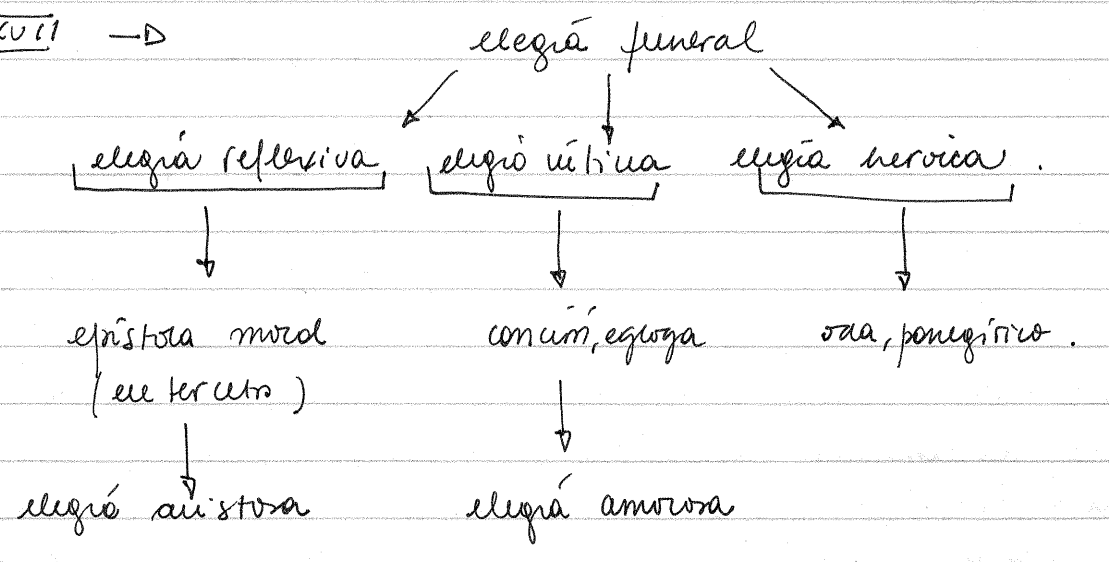 XVII → elegía funeral
elegía reflexiva elegía íntima elegía heroica.
epístola moral canción, egloga oda, panegírico.
(en tercetos)
elegía amistosa elegía amorosa